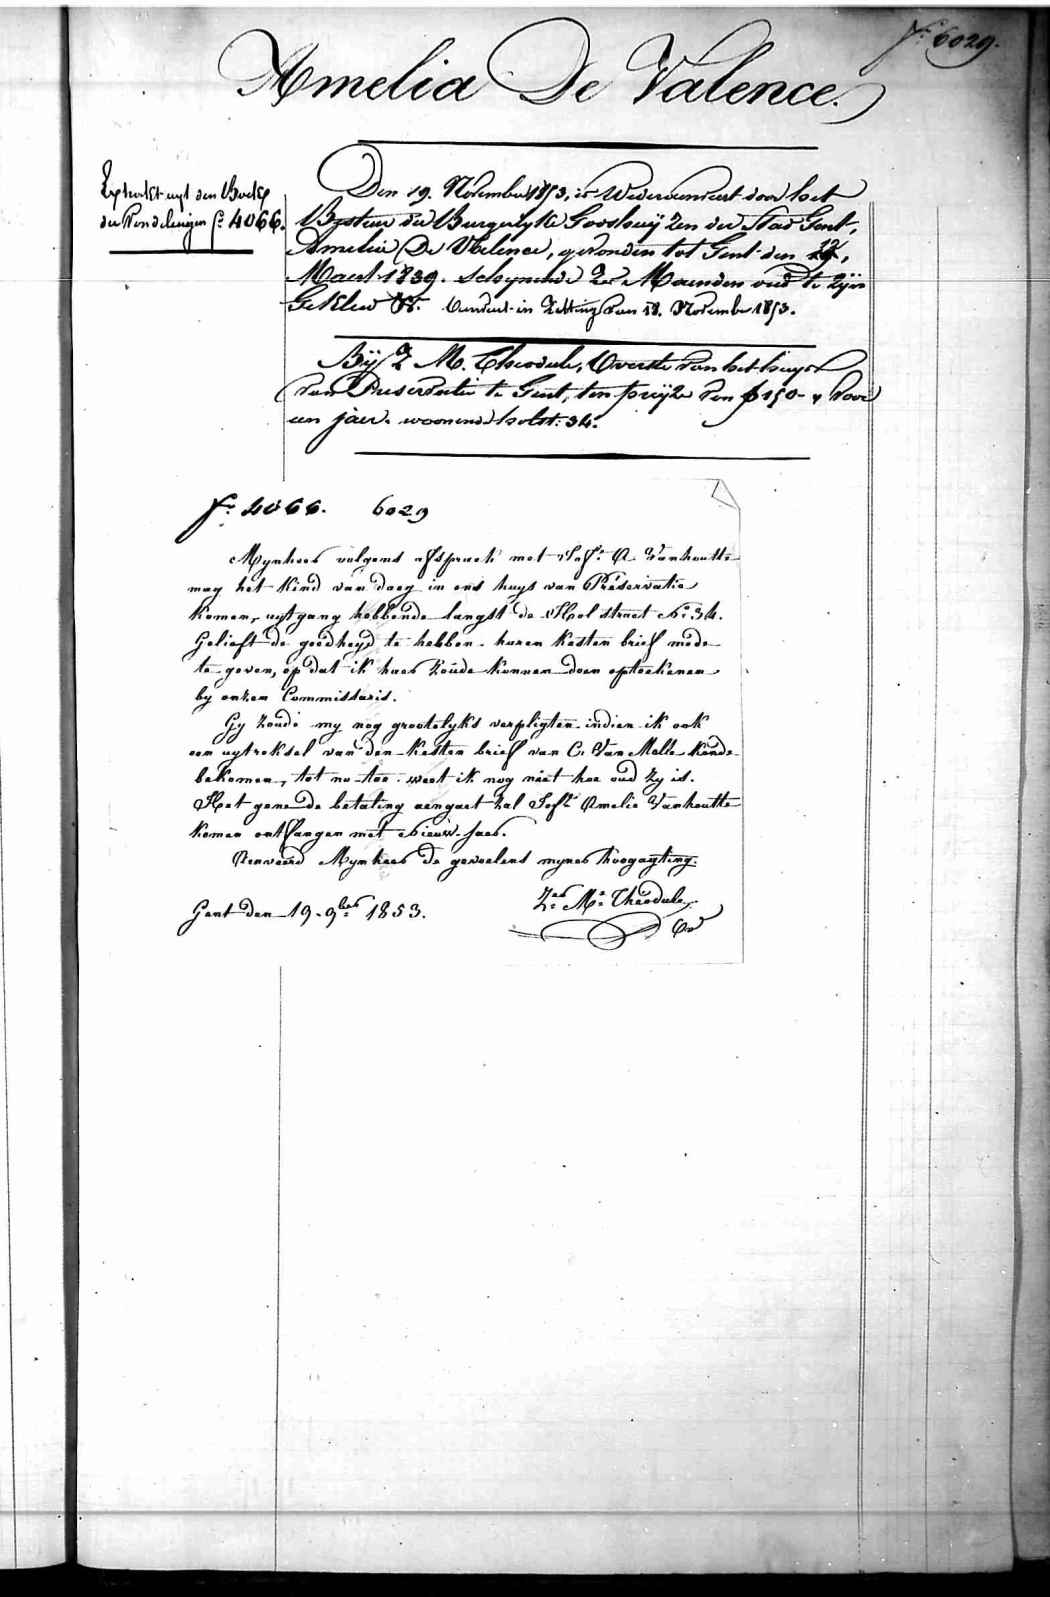 Fo. 6029.
Amelia De Valence.
Extrakt uyt den Boeck
der Vondelingen fo. 4066.
Den 19. November 1853, is Wederaenveert door het
Bestuur der Burgerlyke Godshuyzen der Stad Gent,
Amelia De Valence, gevonden tot Gent den 12,
Maert 1839. Schynende Zes Maenden oud te zijn
Geklew N. Aenveert in Zitting van 18. November 1853.
Bij Z M. Theodule, Overste van het huys
van Preservatie te Gent, ten prijze van f 150- voor
een jaer. woonende holst: 34.
fo. 4066. 6029
Mynheer volgens afspraek met Jufr. A Vanhoutte
mag het kind van daeg in ons huys van Préservatie
komen, uytgang hebbende langst de Hol straet No. 34.
Gelieft de goedheyd te hebben haren kosten brief mede
te geven, op dat ik haer zoude konnen doen opteekenen
by onzen Commissaris.
Gy zoude my nog grootelyks verpligten indien ik ook
een uytreksel van den kosten brief van C. Van Melle konde
bekomen, tot nu toe weet ik nog niet hoe oud zy is.
Het gene de betaling aengaet zal Jufr. Amelie Vanhoutte
komen ontfangen met Nieuw-jaer.
Aenveerd Mynheer de gevoelens myner hoogagting.
Zer. Mr. Théodule,
Gent den 19-9ber 1853.
Ov